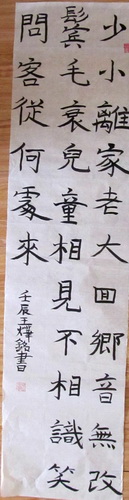 少小離家老大回鄉音無改
鬂毛衰兒童相見不相識笑
問客從何處來
壬辰王燁銘書